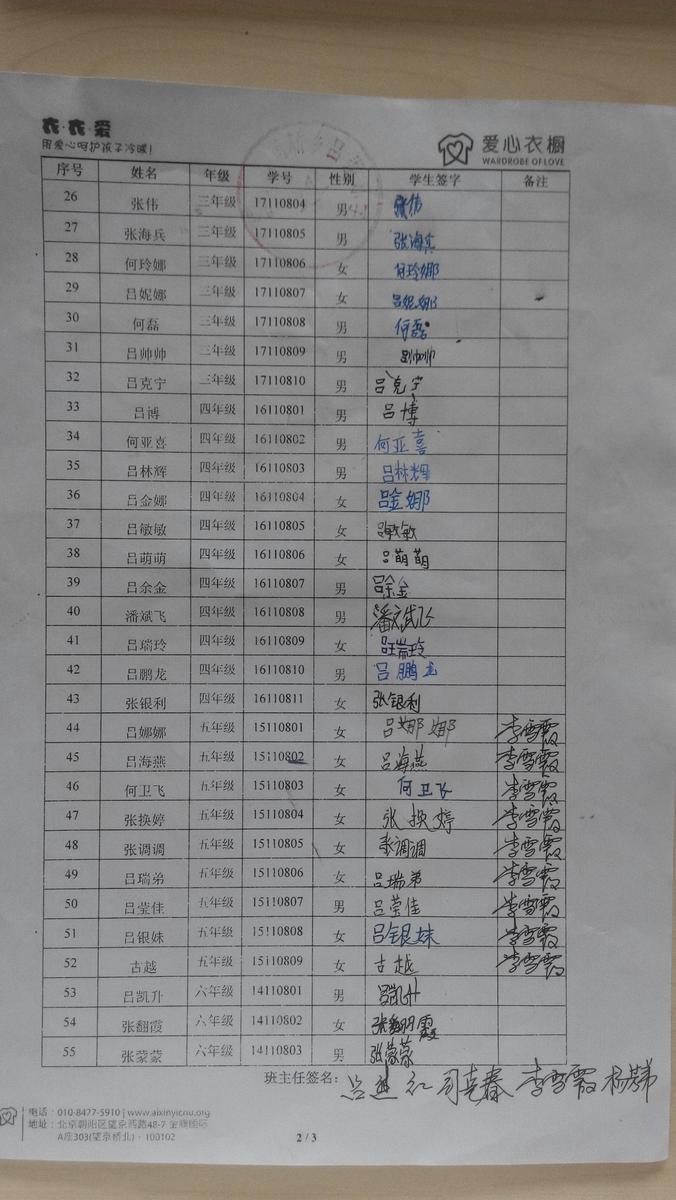 衣·衣·爱
用爱心呵护孩子冷暖!
爱心衣橱
WARDROBE OF LOVE
序号 姓名 年级 学号 性别 学生签字 备注
26 张伟 三年级 17110804 男 张伟
27 张海兵 三年级 17110805 男 张海兵
28 何玲娜 三年级 17110806 女 何玲娜
29 吕妮娜 三年级 17110807 女 吕妮娜
30 何磊 三年级 17110808 男 何磊
31 吕帅帅 三年级 17110809 男 吕帅帅
32 吕克宁 三年级 17110810 男 吕克宁
33 吕博 四年级 16110801 男 吕博
34 何亚喜 四年级 16110802 男 何亚喜
35 吕林辉 四年级 16110803 男 吕林辉
36 吕金娜 四年级 16110804 女 吕金娜
37 吕敏敏 四年级 16110805 女 吕敏敏
38 吕萌萌 四年级 16110806 女 吕萌萌
39 吕余金 四年级 16110807 男 吕余金
40 潘斌飞 四年级 16110808 男 潘斌飞
41 吕瑞玲 四年级 16110809 女 吕瑞玲
42 吕鹏龙 四年级 16110810 男 吕鹏龙
43 张银利 四年级 16110811 女 张银利
44 吕娜娜 五年级 15110801 女 吕娜娜 李雪霞
45 吕海燕 五年级 15110802 女 吕海燕 李雪霞
46 何卫飞 五年级 15110803 女 何卫飞 李雪霞
47 张换婷 五年级 15110804 女 张换婷 李雪霞
48 张调调 五年级 15110805 女 张调调 李雪霞
49 吕瑞弟 五年级 15110806 女 吕瑞弟 李雪霞
50 吕莹佳 五年级 15110807 男 吕莹佳 李雪霞
51 吕银妹 五年级 15110808 女 吕银妹 李雪霞
52 古越 五年级 15110809 女 古越 李雪霞
53 吕凯升 六年级 14110801 男 吕凯升
54 张翻霞 六年级 14110802 女 张翻霞
55 张蒙蒙 六年级 14110803 男 张蒙蒙
班主任签名: 吕 红 司克春 李雪霞
电话:010-8477-5910 | www.aixinyichu.org
地址:北京朝阳区望京西路48-7 金隅国际
A座303(望京桥北)·100102
2 / 3